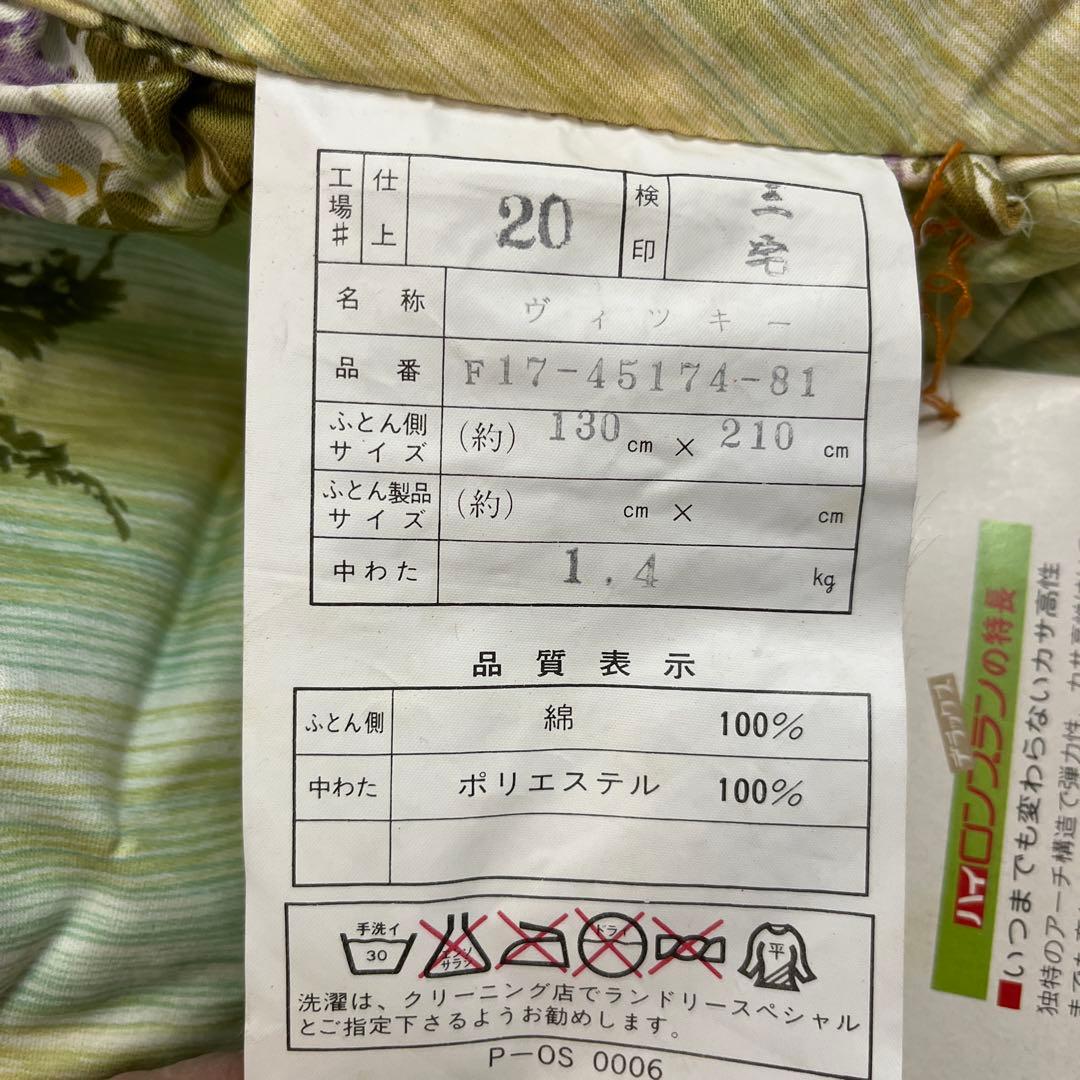 工場# 仕上 20 検印 三宅
名称 ヴィツキー
品番 F17-45174-81
ふとん側サイズ (約) 130cm × 210cm
ふとん製品サイズ (約) cm × cm
中わた 1.4 kg
品質表示
ふとん側 綿 100%
中わた ポリエステル 100%
手洗イ 30 エンソサラシ ドライ 平
洗濯は、クリーニング店でランドリースペシャル
とご指定下さるようお勧めします。
P-OS 0006
デラックス
ハイロンスランの特長
■いつまでも変わらないカサ高性
独特のアーチ構造で弾力性、カサ高性